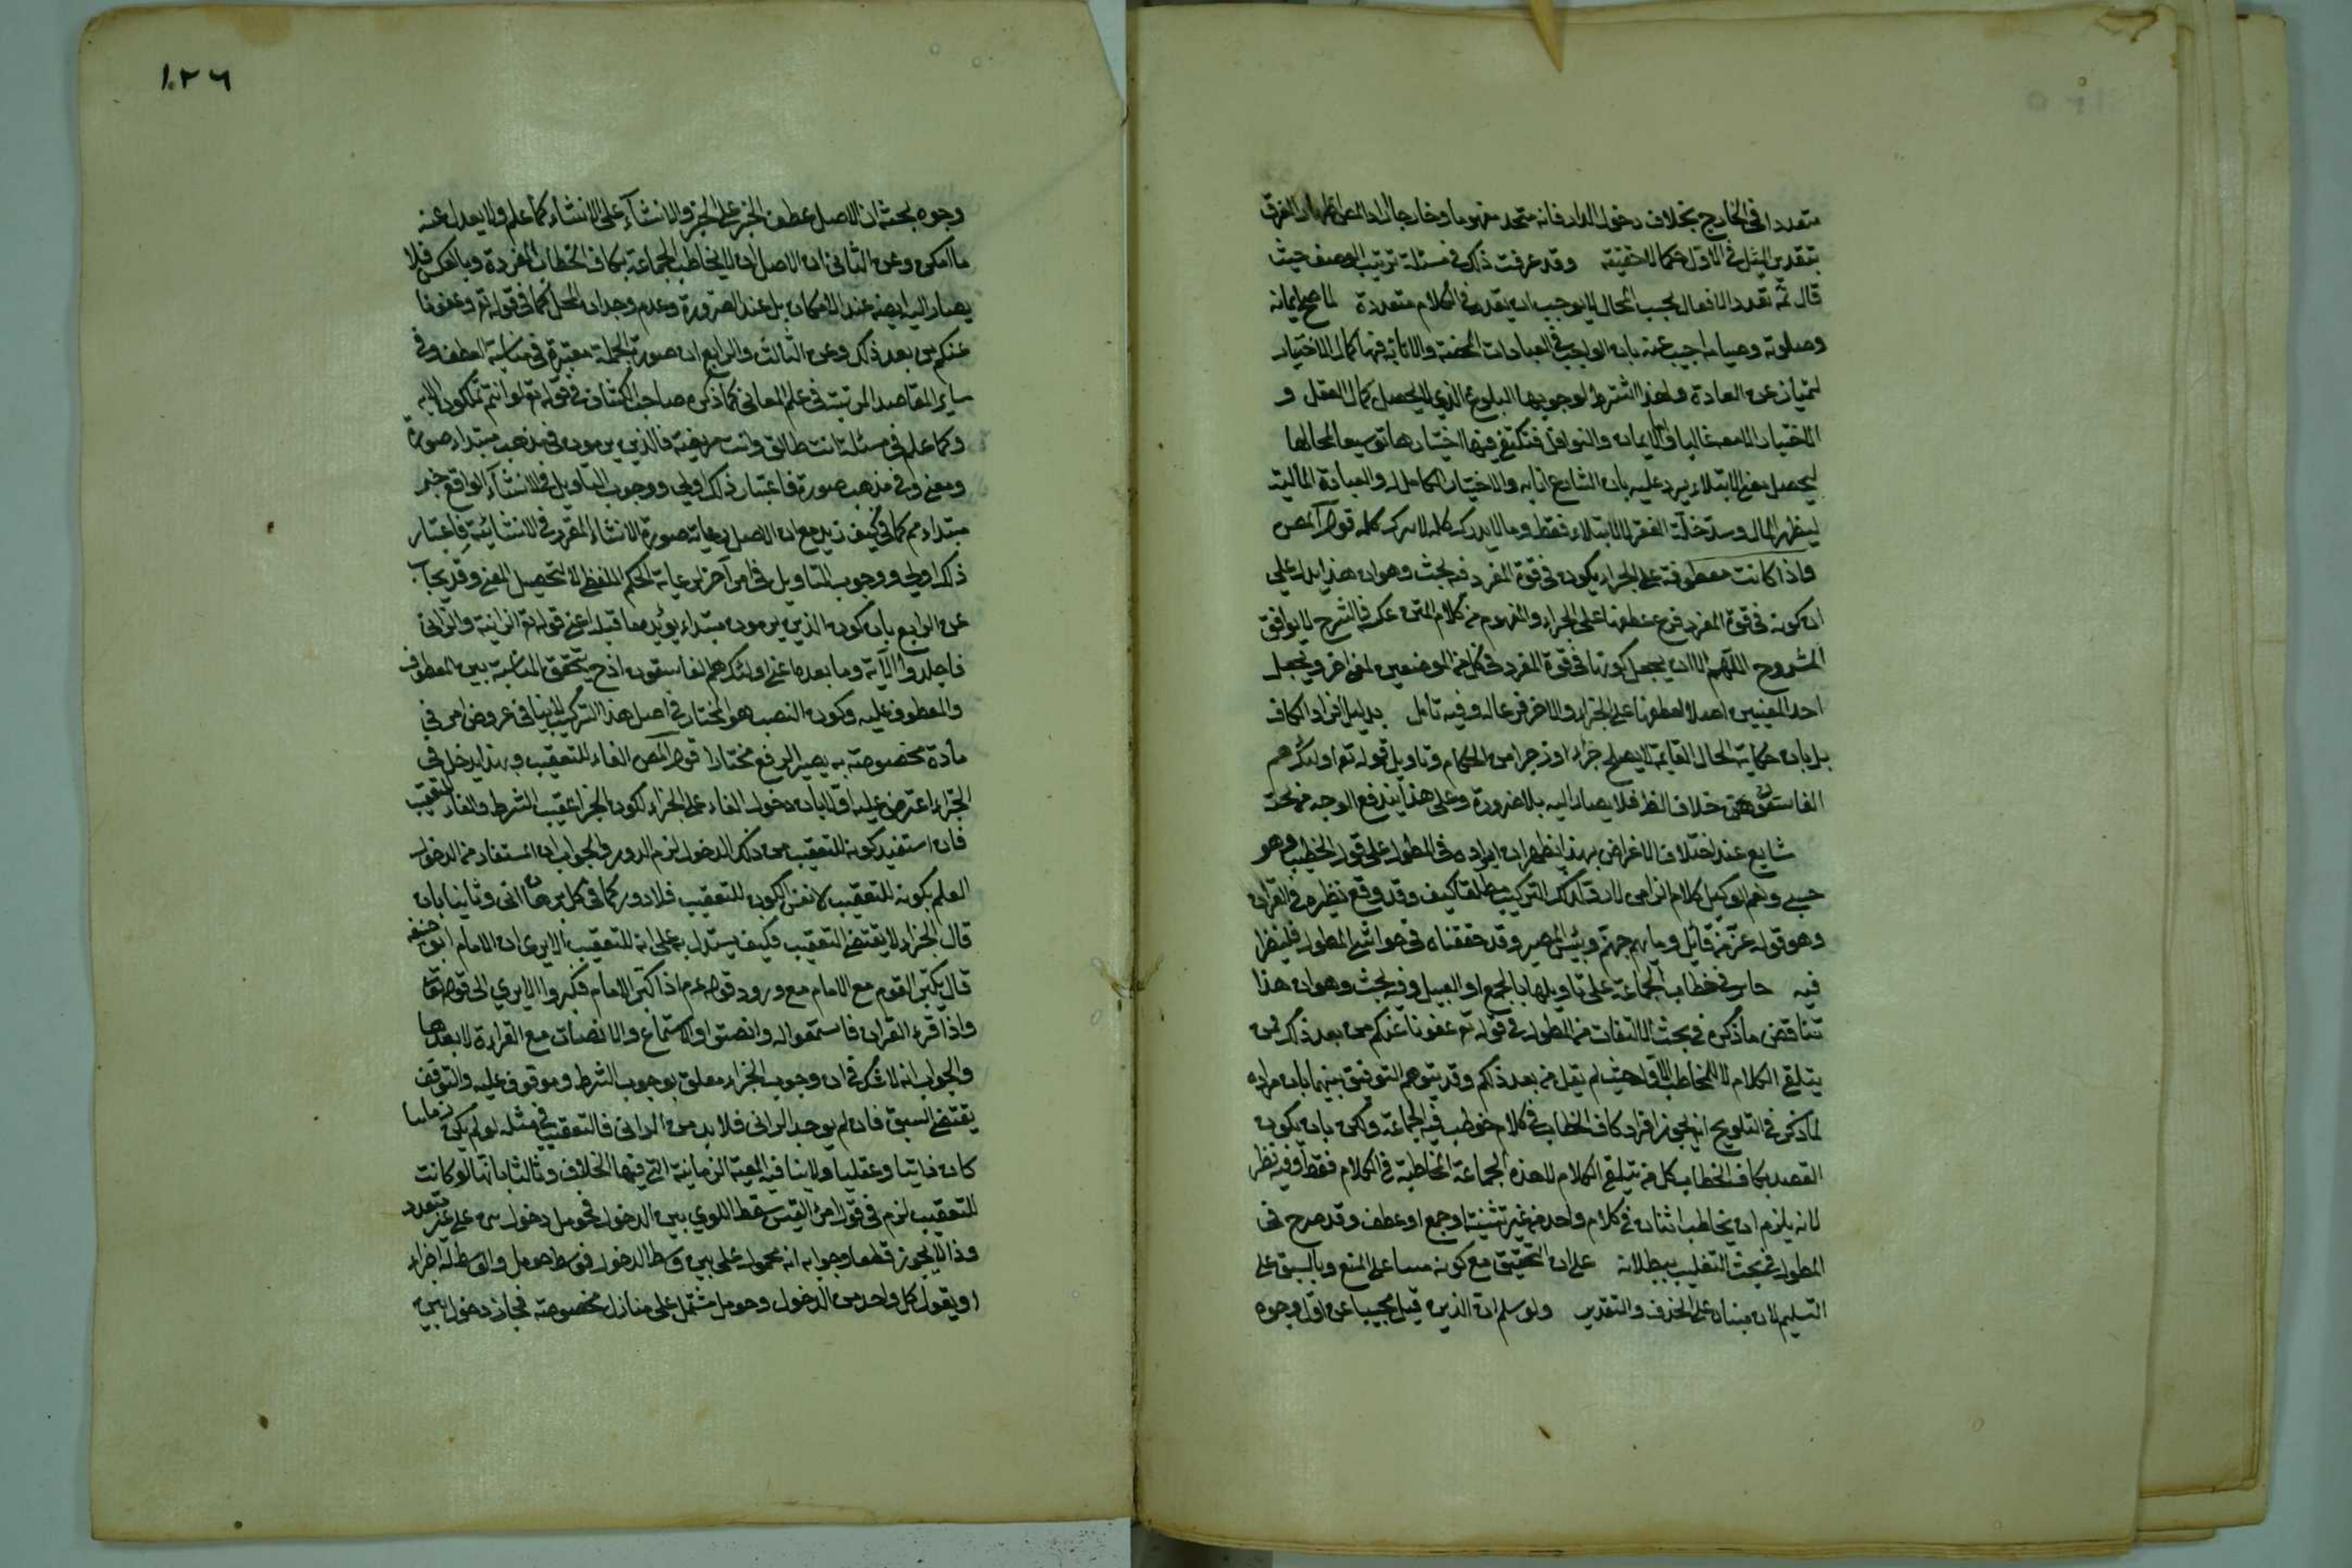 متعددا في الخارج بخلاف دخول الدار فانه متحد مفهوما وخارجا
بتقدير المثل في الاول كما لا خفيته وقد عرفت ذلك في مسئلة ترتيب الوصف حيث
قال ثمه تعدد الافعال بحسب المحال لا يوجب ان يقدر في الكلام متعددة لما صح ايمانه
وصلوته وصيامه اجيب عنه بان الواجب في العبادات المحضة والاثابة فيها كمال الاختيار
لتمتاز عن العادة ولهذا اشترط لوجوبها البلوغ الذي لا يحصل كمال العقل و
الاختيار الا معه غالبا واما الايمان والنوافل فنكتفي فيها اختيارها توسيعا لمحالها
ليحصل معنى الابتلاء يرد عليه بان الشارع اثابه والاختيار الكامل والعبادة المالية
ليظهر المال وسد خلة الفقر لا الابتلاء فقط وما لا يدرك كله لا يترك كله قوله المص
واذا كانت معطوفة على الجزاء يكون في قوة المفرد فيه بحث وهو ان هذا يدل على
ان كونه في قوة المفرد فرع عطفها على الجزاء والمفهوم من كلام المتن عكسه فالشرح لا يوافق
المشروح اللهم الا ان يجعل كونها في قوة المفرد في كل من الموضعين لمعنى اخر ويجعل
احد المعنيين اصلا لعطفها على الجزاء والاخر فرعا له وفيه تأمل بدليل افراد الكاف
بل بان حكاية الحال القايمة لا يصلح جزاء او زجرا من الحكام وتاويل قوله تع اولئك هم
الفاسقون خلاف الظ فلا يصار اليه بلا ضرورة وعلى هذا يندفع الوجه من بحث
شايع عند اختلاف الاغراض بهذا يظهر ان ايراده في المطول على قول الخطيب وهو
حسبي ونعم الوكيل كلام الزامي لا رد لذلك التركيب مطلقا كيف وقد وقع نظيره في القرآن
وهو قوله عز من قائل وماويهم جهنم وبئس المصير وقد حققناه في حواشي المطول فلينظر
فيه جاز في خطاب الجماعة على تاويلها بالجمع او القبيل وفيه بحث وهو ان هذا
يناقض ما ذكره في بحث الالتفات من المطول في قوله تع عفونا عنكم من بعد ذلك لمن
يتلقى الكلام لا للمخاطب الاول حيث لم يقل من بعد ذلكم وقد يتوهم التوفيق بينهما بان مراده
لما ذكر في التلويح انه يجوز افراد كاف الخطاب في كلام خوطب فيه الجماعة ولكن بان يكون
القصد بكاف الخطاب كل من يتلقى الكلام لا هذه الجماعة المخاطبة في الكلام فقط وفيه نظر
لانه يلزم ان يخاطب اثنان في كلام واحد من غير تثنية او جمع او عطف وقد صرح في
المطول في بحث التغليب ببطلانه على ان التحقيق مع كونه مبنيا على المنع وبالسبق على
التسليم لان مبناه على الحذف والتقدير ولو سلم ان الذين قيل مجيبا عن اول وجوه
١٢٦
وجوه بحث ان الاصل عطف الخبر على الخبر والانشاء على الانشاء كما علم ولا يعدل عنه
ما امكن وعن الثاني ان الاصل ان لا يخاطب الجماعة بكاف الخطاب المفردة وبالعكس فلا
يصار اليه ايضا عند الامكان بل عند الضرورة وعدم وجدان المحل كما في قوله تع وعفونا
عنكم من بعد ذلك وعن الثالث والرابع ان صورة الجملة معتبرة في مناسبة العطف وفي
ساير المقاصد المرتبة في علم المعاني كما ذكره صاحب الكشاف في قوله تع لو انتم تملكون الآية
وكما علم في مسئلة انت طالق وانت مريضة فالذين يرمون في مذهب مبتداء صورة
ومعنى وفي مذهب صورة فاعتبار ذلك اولى ووجوب التاويل في الانشاء الواقع خبر
مبتداء مم كما في كيف زيد مع ان الاصل رعاية صورة الانشاء المقرر في الانشائية فاعتبار
ذلك اولى ووجوب التاويل في امر آخر لرعاية الحكم اللفظي لا لتحصيل المعنى وقد يجاب
عن الرابع بان كون الذين يرمون مبتداء يؤيد ما قبله اعني قوله تع الزانية والزاني
فاجلدوا الآية وما بعده اعني اولئك هم الفاسقون اذ ح يتحقق المناسبة بين المعطوف
والمعطوف عليه وكون النصب هو المختار في اصل هذا التركيب لا ينافي عروض امر في
مادة مخصوصة به يصير الرفع مختارا قوله المص الفاء للتعقيب وبهذا يدخل في
الجزاء اعترض عليه اولا بان دخول الفاء على الجزاء لكون الجزاء عقيب الشرط والفاء للتعقيب
فان استفيد كونه للتعقيب من ذلك الدخول لزم الدور والجواب ان المستفاد من الدخول
العلم بكونه للتعقيب لا نفس الكون للتعقيب فلا دور كما في كل برهان اني وثانيا بان
قال الجزاء لا يقتضي التعقيب فكيف يستدل به على انه للتعقيب الا يرى ان الامام ابو حنيفة
قال يكبر القوم مع الامام مع ورود قوله عم اذا كبر الامام فكبروا الا يرى الى قوله تعالى
واذا قرء القرآن فاستمعوا له وانصتوا والاستماع والانصات مع القراءة لا بعدها
والجواب انه لا شك في ان وجوب الجزاء معلق بوجوب الشرط وموقوف عليه والتوقف
يقتضي السبق فان لم يوجد الزماني فلا بد من الذاتي فالتعقيب في مثله لو لم يكن زمانيا
كان ذاتيا وعقليا ولا ينافيه المعية الزمانية التي فيها الخلاف وثالثا بانها لو كانت
للتعقيب لزم في قول امرئ القيس سقط اللوي بين الدخول فحومل دخول بين على غير متعدد
وذا لا يجوز قطعا وجوابه انه محمول على بين وسط الدخول فوسط حومل والوسط له اجزاء
او يقول كل واحد من الدخول وحومل مشتمل على منازل مخصوصة فجاز دخول بين